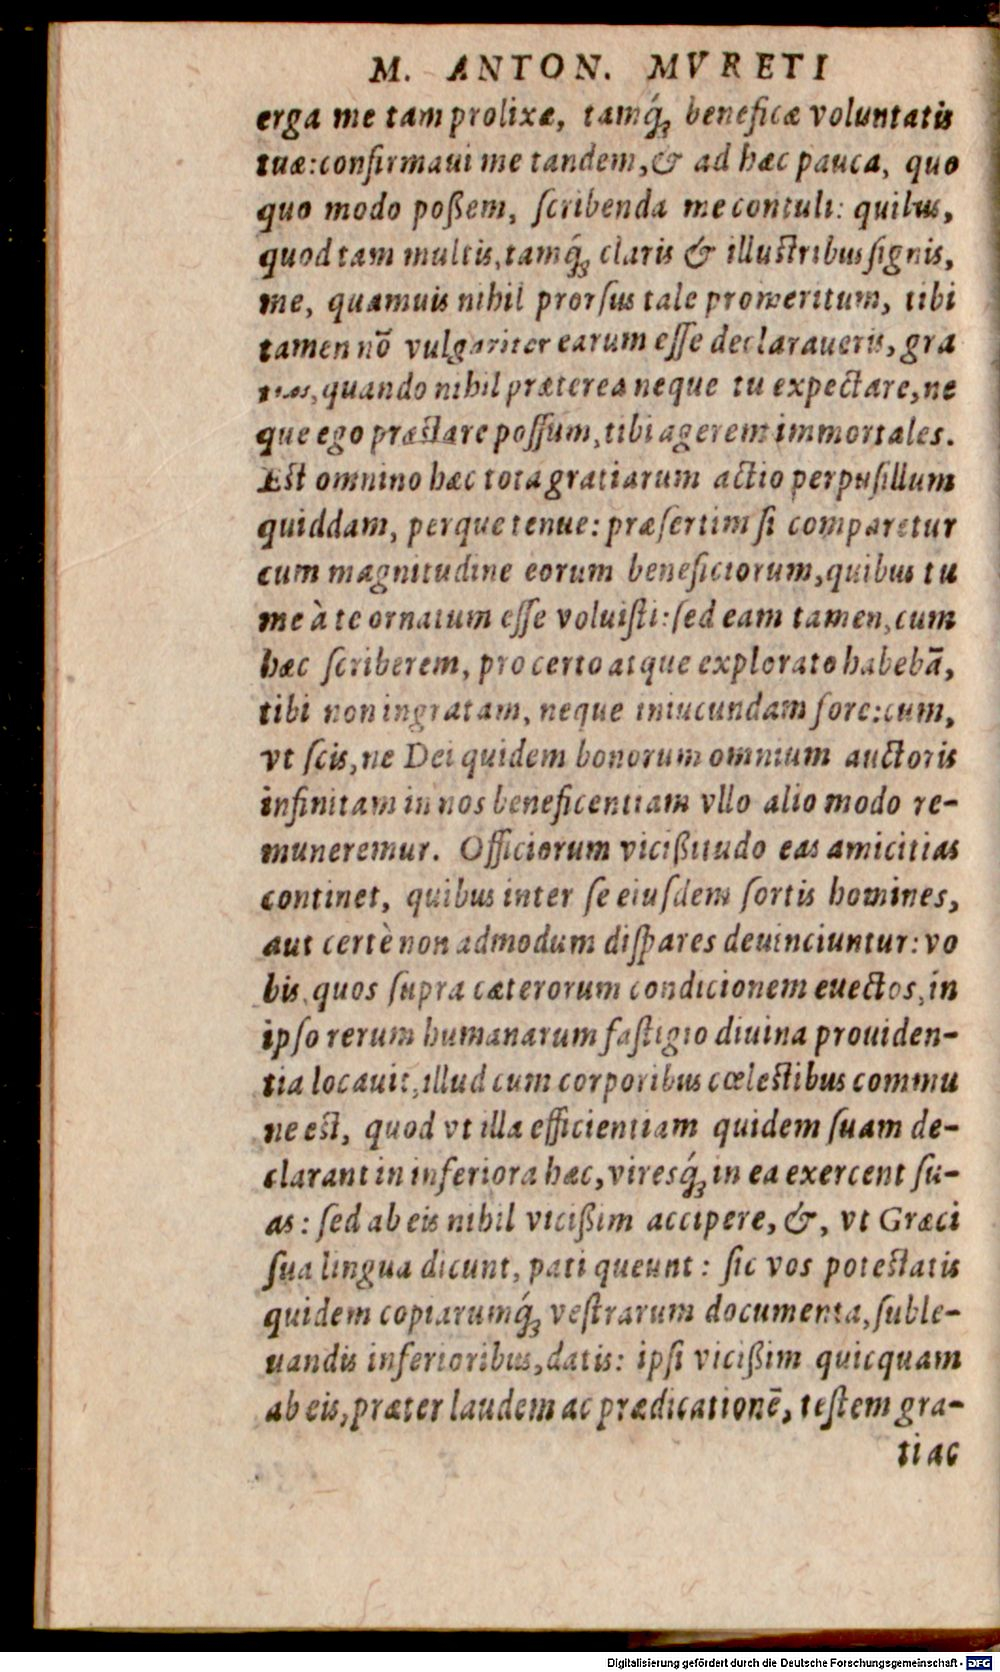 M. ANTON. MVRETI
erga me tam prolixæ, tamq́; beneficæ voluntatis
tuæ: confirmaui me tandem, & ad hæc pauca, quo
quo modo poßem, ſcribenda me contuli: quibus,
quod tam multis, tamq́; claris & illuſtribus ſignis,
me, quamuis nihil prorſus tale promeritum, tibi
tamen nō vulgariter earum eſſe declaraueris, gra
tias, quando nihil præterea neque tu expectare, ne
que ego præſtare poſſum, tibi agerem immortales.
Eſt omnino hæc tota gratiarum actio perpuſillum
quiddam, perque tenue: præſertim ſi comparetur
cum magnitudine eorum beneficiorum, quibus tu
me à te ornatum eſſe voluiſti: ſed eam tamen, cum
hæc ſcriberem, pro certo atque explorato habebā,
tibi non ingratam, neque iniucundam fore: cum,
vt ſcis, ne Dei quidem bonorum omnium auctoris
infinitam in nos beneficentiam vllo alio modo re-
muneremur. Officiorum vicißitudo eas amicitias
continet, quibus inter ſe eiuſdem ſortis homines,
aut certè non admodum diſpares deuinciuntur: vo
bis, quos ſupra cæterorum condicionem euectos, in
ipſo rerum humanarum faſtigio diuina prouiden-
tia locauit, illud cum corporibus cœleſtibus commu
ne eſt, quod vt illa efficientiam quidem ſuam de-
clarant in inferiora hæc, viresq́; in ea exercent ſu-
as: ſed ab eis nihil vicißim accipere, &, vt Græci
ſua lingua dicunt, pati queunt: ſic vos poteſtatis
quidem copiarumq́; veſtrarum documenta, ſuble-
uandis inferioribus, datis: ipſi vicißim quicquam
ab eis, præter laudem ac prædicationē, teſtem gra-
ti ac
Digitalisierung gefördert durch die Deutsche Forschungsgemeinschaft - DFG